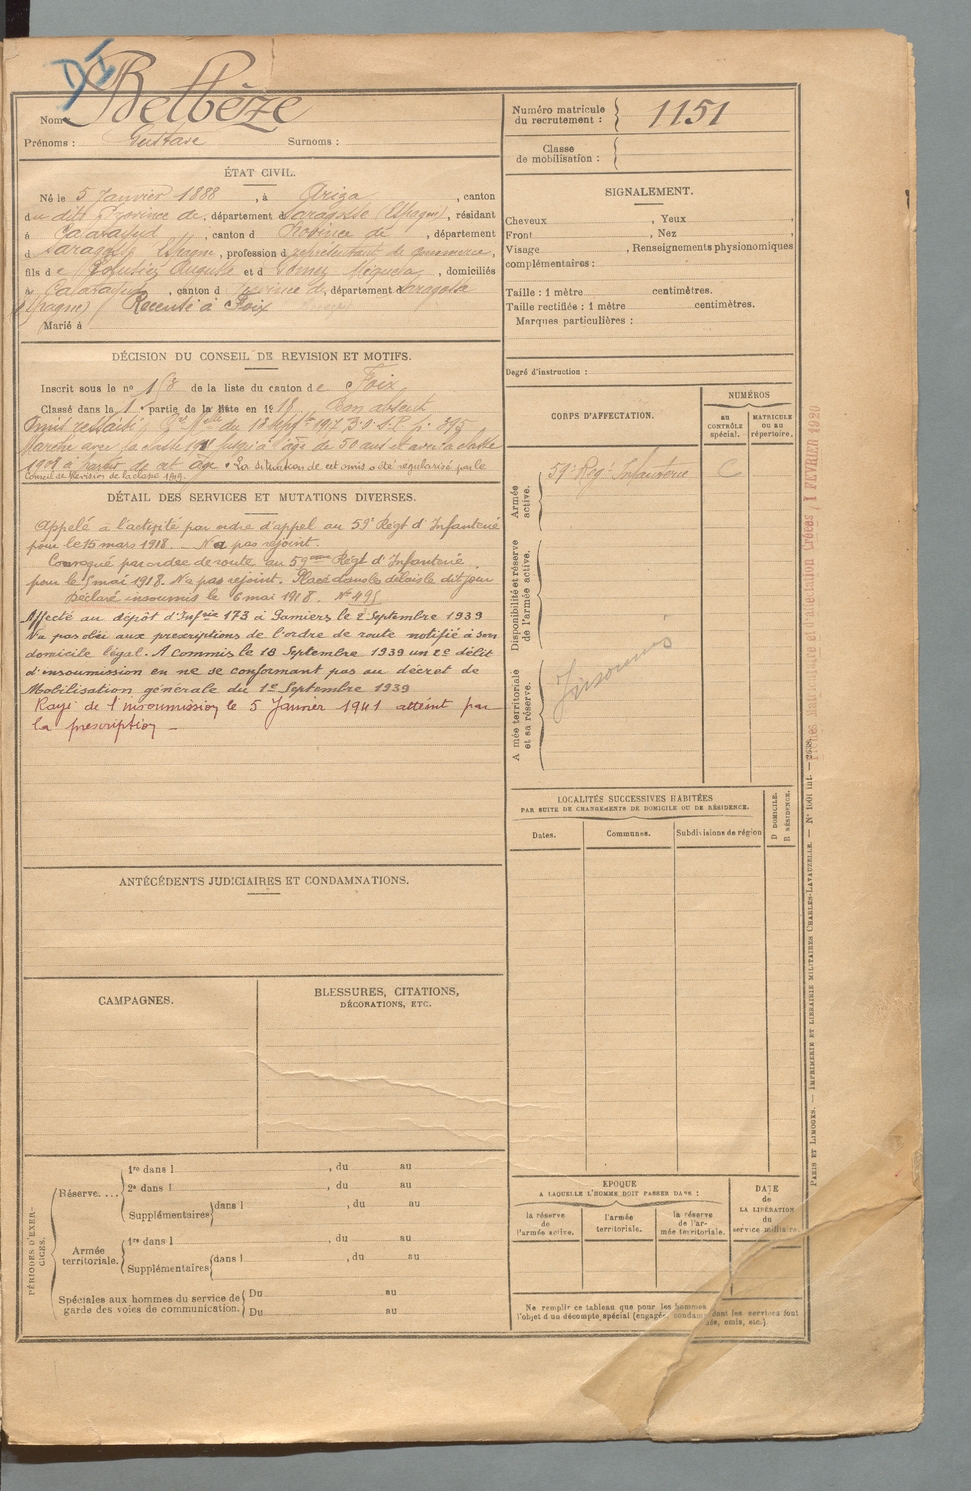 DI
Nom Belbèze
Prénoms : Gustave Surnoms :
Numéro matricule du recrutement : 1151
Classe de mobilisation :
ÉTAT CIVIL.
Né le 5 Janvier 1888, à Ariza, canton
du dit Province de, département de Saragosse (Espagne), résidant
à Calatayud, canton d Province de, département
d Saragosse Espagne, profession d représentant de commerce,
fils de Auguste et d Gomez, domiciliés
à Calatayud, canton d Province de, département d Saragosse
(Espagne) Recensé à Foix
Marié à
SIGNALEMENT.
Cheveux , Yeux ,
Front , Nez ,
Visage , Renseignements physionomiques
complémentaires :
Taille : 1 mètre centimètres.
Taille rectifiée : 1 mètre centimètres.
Marques particulières :
Degré d'instruction :
DÉCISION DU CONSEIL DE REVISION ET MOTIFS.
Inscrit sous le no 158 de la liste du canton de Foix
Classé dans la 1e partie de la liste en 1918 Bon absent
Omis ressaisi, du 18 Septbre 1917 B.O.E.P. p. 895
Marche avec la classe jusqu'à l'âge de 50 ans et avec la classe
1908 à partir de cet âge. La situation de cet omis a été régularisé par le
Conseil de Révision de la classe 1919.
DÉTAIL DES SERVICES ET MUTATIONS DIVERSES.
Appelé à l'activité par ordre d'appel au 59e Régt d'Infanterie
pour le 15 mars 1918. N'a pas rejoint.
Convoqué par ordre de route au 59ème Régt d'Infanterie
pour le 5 mai 1918. N'a pas rejoint. Placé dans les délais le dit jour
Déclaré insoumis le 6 mai 1918. No 495
Affecté au dépôt d'Infrie 173 à Pamiers le 2 Septembre 1939
N'a pas obéi aux prescriptions de l'ordre de route notifié à son
domicile légal. A commis le 18 Septembre 1939 un 2e délit
d'insoumission en ne se conformant pas au décret de
Mobilisation générale du 1er Septembre 1939
Rayé de l'insoumission le 5 Janvier 1941 atteint par
la prescription
CORPS D'AFFECTATION.
NUMÉROS
au CONTRÔLE spécial.
MATRICULE ou au répertoire.
Armée active.
59e Régt Infanterie C
Disponibilité et réserve de l'armée active.
Armée territoriale et sa réserve.
Insoumis
LOCALITÉS SUCCESSIVES HABITÉES
PAR SUITE DE CHANGEMENTS DE DOMICILE OU DE RÉSIDENCE.
Dates. Communes. Subdivisions de région
D DOMICILE. R RÉSIDENCE.
ANTÉCÉDENTS JUDICIAIRES ET CONDAMNATIONS.
CAMPAGNES.
BLESSURES, CITATIONS,
DÉCORATIONS, ETC.
PÉRIODES D'EXERCICES.
Réserve....
1re dans l , du au
2e dans l , du au
Supplémentaires dans l , du au
Armée territoriale.
1re dans l , du au
Supplémentaires dans l , du au
Spéciales aux hommes du service de garde des voies de communication.
Du au
Du au
EPOQUE
A LAQUELLE L'HOMME DOIT PASSER DANS :
la réserve de l'armée active.
l'armée territoriale.
la réserve de l'armée territoriale.
DATE de LA LIBÉRATION du service militaire
Ne remplir ce tableau que pour les hommes dont les services font
l'objet d'un décompte spécial (engagés, condam és, omis, etc.).
PARIS ET LIMOGES. — IMPRIMERIE ET LIBRAIRIE MILITAIRES CHARLES-LAVAUZELLE. — No 1001 int. —
1 FEVRIER 1920